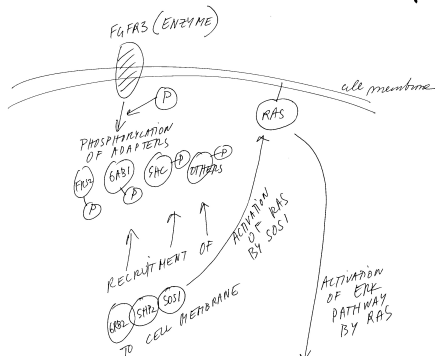 FGFR3 (ENZYME)
cell membrane
P
RAS
PHOSPHORYLATION
OF ADAPTERS
FRS2
GAB1
SHC
OTHERS
P
P
P
P
RECRUITMENT OF
GRB2
SHP2
SOS1
TO CELL MEMBRANE
ACTIVATION
OF RAS
BY SOS1
ACTIVATION
OF ERK
PATHWAY
BY RAS